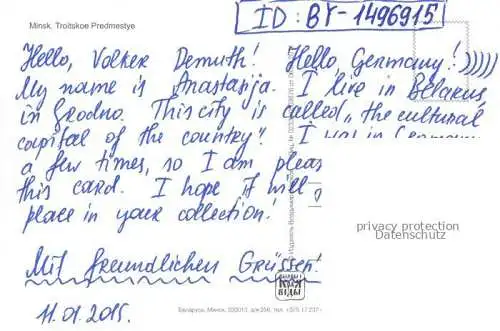 Minsk. Troitskoe Predmestye
ID: BY-1496915
Hello, Volker Demuth! Hello, Germany! :)))))
My name is Anastasija. I live in Belarus,
in Grodno. This city is called "the cultural
capital of the country". I was in Germany
a few times, so I am
this card. I hope it will
place in your collection!
privacy protection
Datenschutz
Mit freundlichen Grüssen!
11.01.2015.